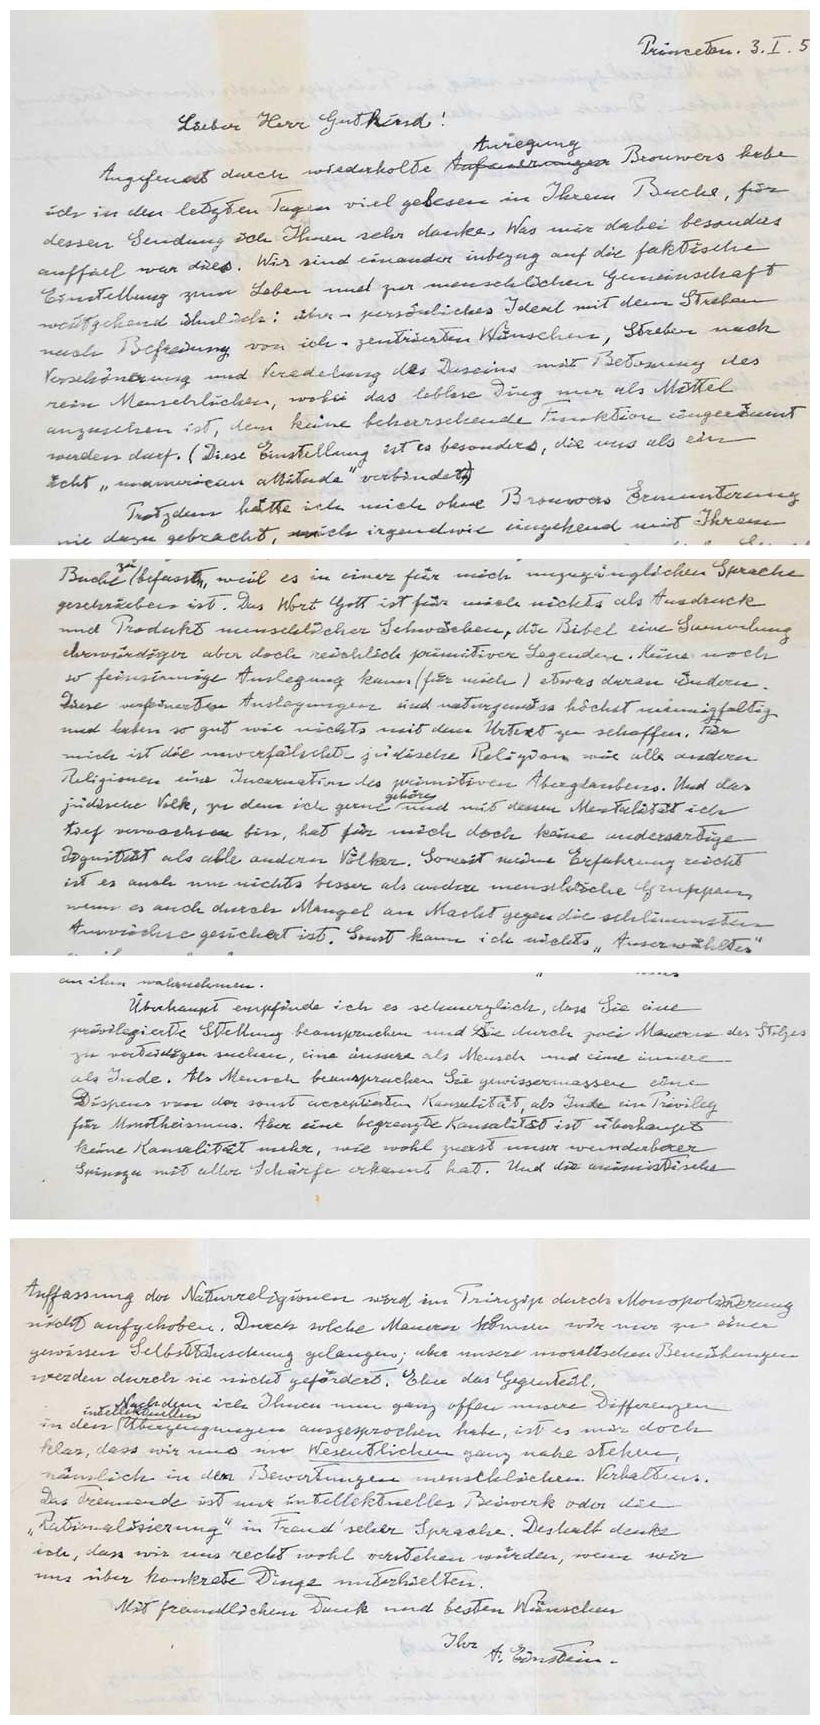 Princeton. 3. I. 5
Lieber Herr Gutkind!
Anregung
Angefeuert durch wiederholte Brouwers habe
ich in den letzten Tagen viel gelesen in Ihrem Buche, für
dessen Sendung ich Ihnen sehr danke. Was mir dabei besonders
auffiel war dies. Wir sind einander inbezug auf die faktische
Einstellung zum Leben und zur menschlichen Gemeinschaft
weitgehend ähnlich: über-persönliches Ideal mit dem Streben
nach Befreiung von ich-zentrierten Wünschen, Streben nach
Verschönerung und Veredelung des Daseins mit Betonung des
rein Menschlichen, wobei das leblose Ding nur als Mittel
anzusehen ist, dem keine beherrschende Funktion eingeräumt
werden darf. (Diese Einstellung ist es besonders, die uns als ein
ächt „unamerican attitude" verbindet.)
Trotzdem hätte ich mich ohne Brouwers Ermunterung
nie dazu gebracht, mich irgendwie eingehend mit Ihrem
Buche zu befassen, weil es in einer für mich unzugänglichen Sprache
geschrieben ist. Das Wort Gott ist für mich nichts als Ausdruck
und Produkt menschlicher Schwächen, die Bibel eine Sammlung
ehrwürdiger aber doch reichlich primitiver Legenden. Keine noch
so feinsinnige Auslegung kann (für mich) etwas daran ändern.
Diese verfeinerten Auslegungen sind naturgemäss höchst mannigfaltig
und haben so gut wie nichts mit dem Urtext zu schaffen. Für
mich ist die unverfälschte jüdische Religion wie alle anderen
Religionen eine Incarnation des primitiven Aberglaubens. Und das
jüdische Volk, zu dem ich gerne gehöre und mit dessen Mentalität ich
tief verwachsen bin, hat für mich doch keine andersartige
Dignität als alle andern Völker. Soweit meine Erfahrung reicht
ist es auch um nichts besser als andere menschliche Gruppen,
wenn es auch durch Mangel an Macht gegen die schlimmsten
Auswüchse gesichert ist. Sonst kann ich nichts „Auserwähltes"
an ihm wahrnehmen.
Überhaupt empfinde ich es schmerzlich, dass Sie eine
privilegierte Stellung beanspruchen und Sie durch zwei Mauern des Stolzes
zu verteidigen suchen, eine äussere als Mensch und eine innere
als Jude. Als Mensch beanspruchen Sie gewissermassen eine
Dispens von der sonst acceptierten Kausalität, als Jude ein Privileg
für Monotheismus. Aber eine begrenzte Kausalität ist überhaupt
keine Kausalität mehr, wie wohl zuerst unser wunderbarer
Spinoza mit aller Schärfe erkannt hat. Und die animistische
Auffassung der Naturreligionen wird im Prinzip durch Monopolisierung
nicht aufgehoben. Durch solche Mauern können wir nur zu einer
gewissen Selbsttäuschung gelangen; aber unsere moralischen Bemühungen
werden durch sie nicht gefördert. Eher das Gegenteil.
Nachdem ich Ihnen nun ganz offen unsere Differenzen
in den intellektuellen Überzeugungen ausgesprochen habe, ist es mir doch
klar, dass wir uns im Wesentlichen ganz nahe stehen,
nämlich in den Bewertungen menschlichen Verhaltens.
Das Trennende ist nur intellektuelles Beiwerk oder die
„Rationalisierung" in Freud'scher Sprache. Deshalb denke
ich, dass wir uns recht wohl verstehen würden, wenn wir
uns über konkrete Dinge unterhielten.
Mit freundlichem Dank und besten Wünschen
Ihr
A. Einstein.